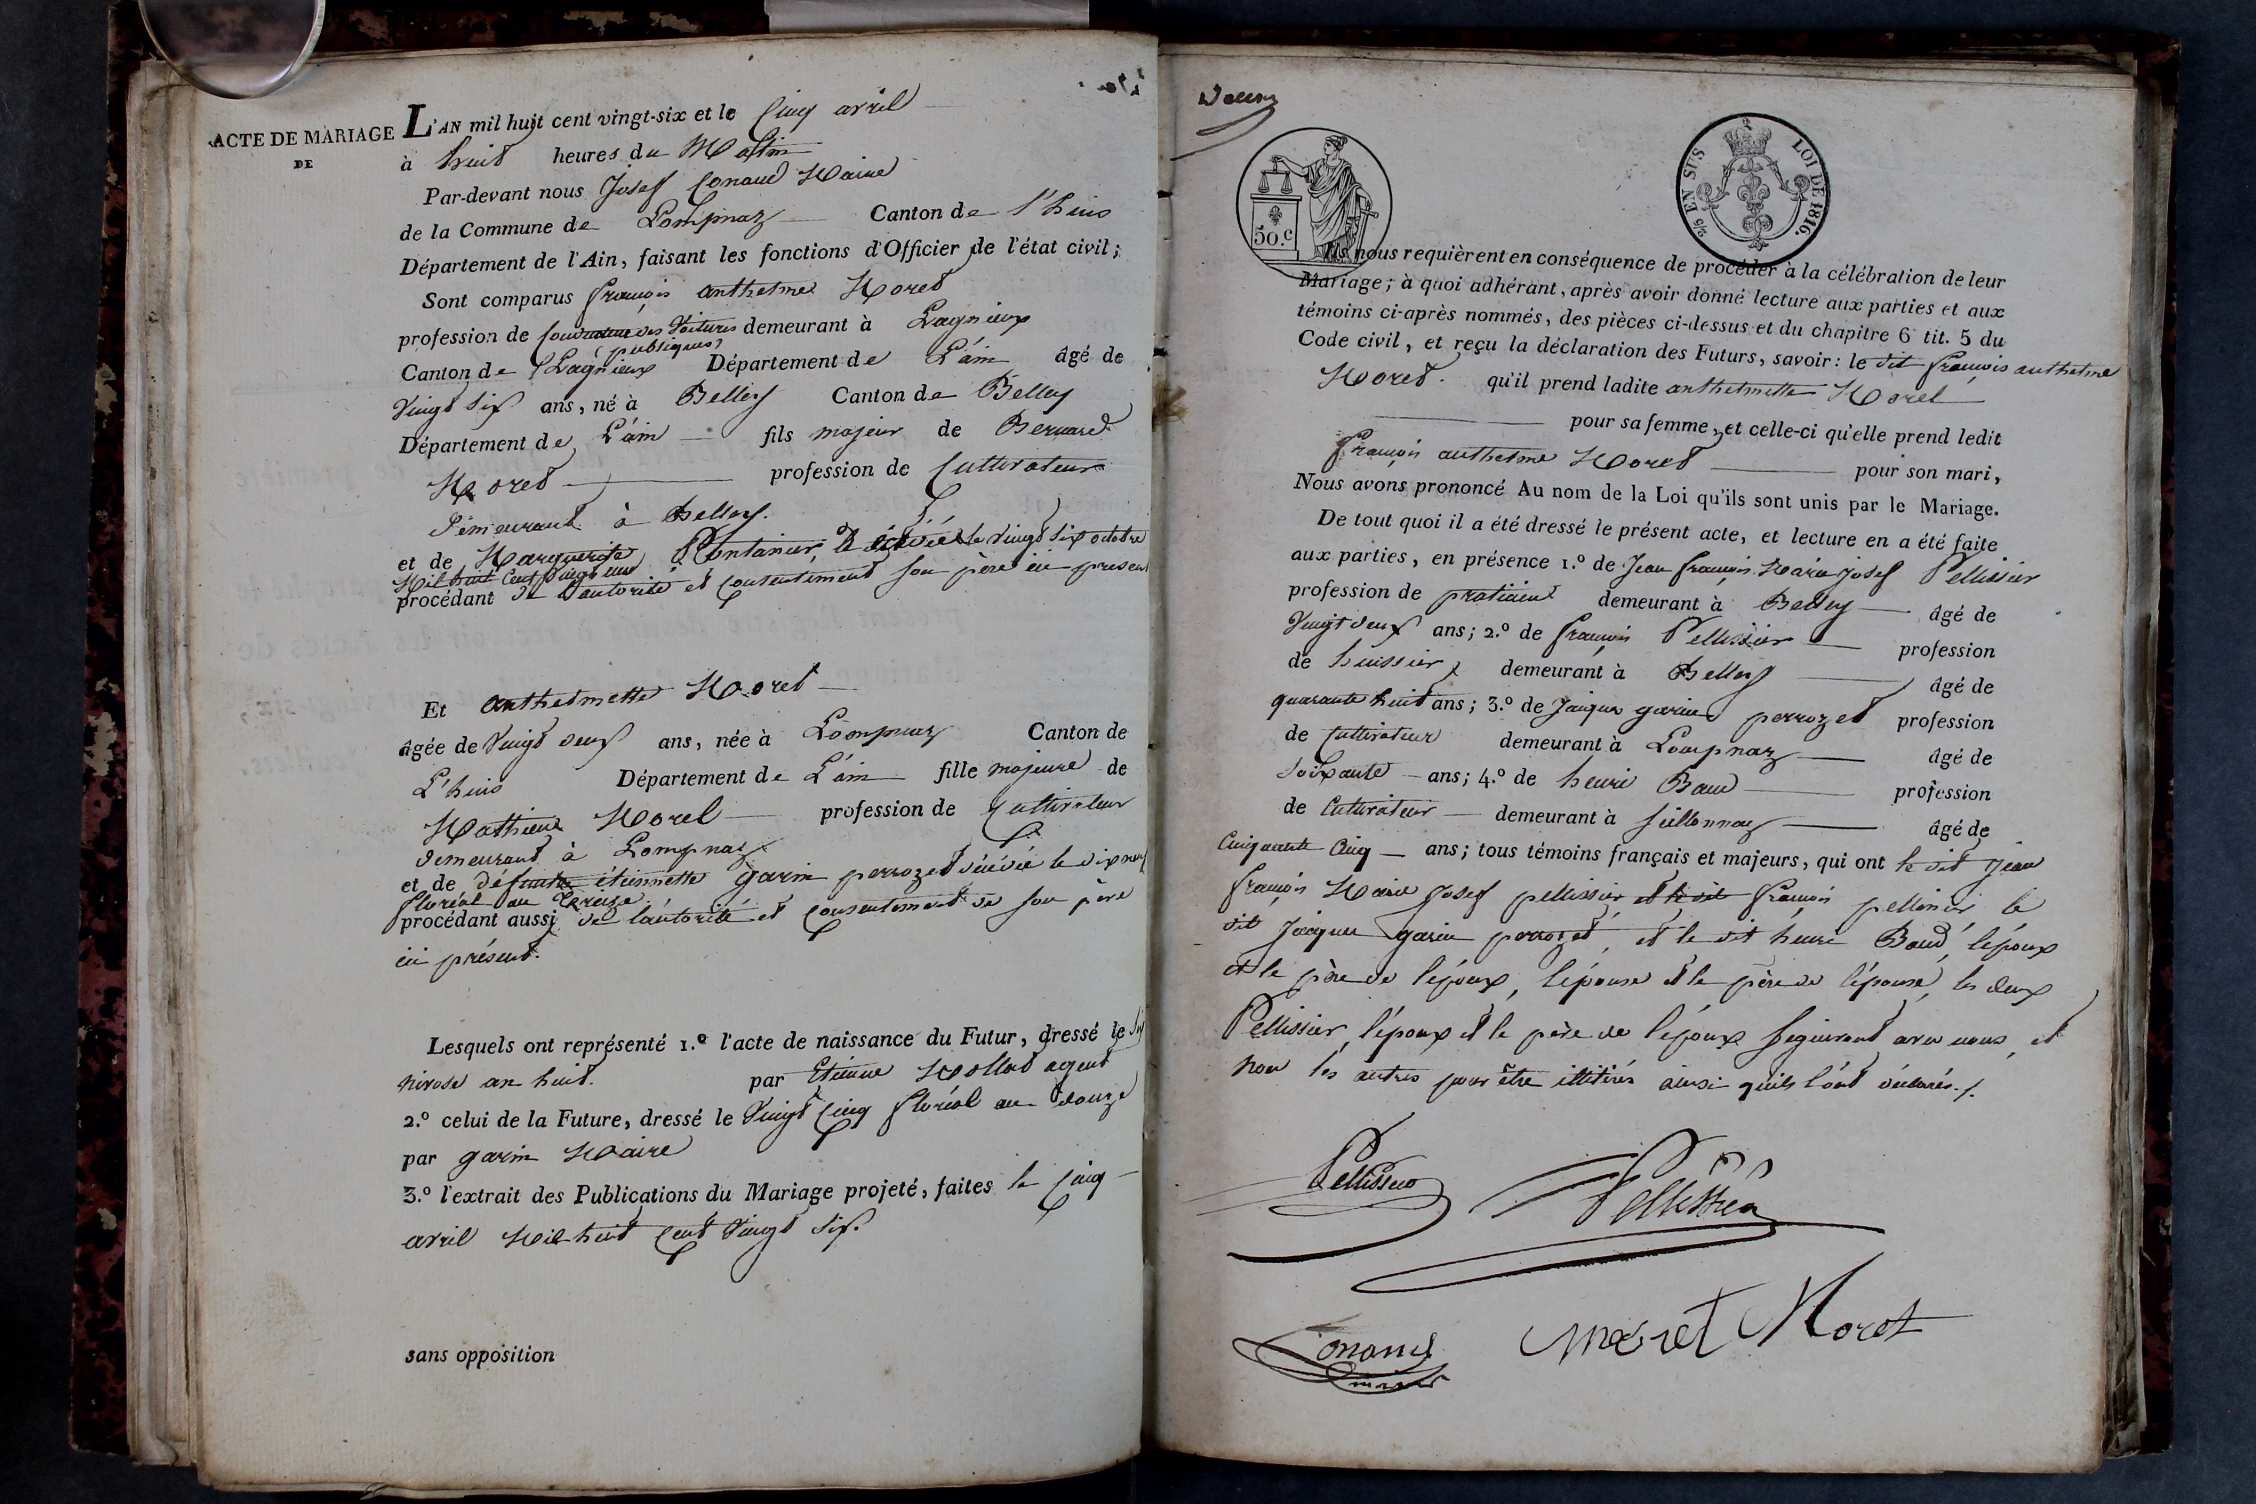 ACTE DE MARIAGE
DE
L'AN mil huit cent vingt-six et le Cinq avril
à huit heures du Matin
Par-devant nous Josef Conand Maire
de la Commune de Lompnaz Canton de l'huis
Département de l'Ain, faisant les fonctions d'Officier de l'état civil;
Sont comparus françois anthelme Moret
profession de Conducteur des Voitures demeurant à Lagnieux
publiques
Canton de Lagnieux Département de L'ain âgé de
Vingt Six ans, né à Belley Canton de Belley
Département de L'ain fils majeur de Bernard
Moret profession de Cultivateur
Demeurant à Belley.
et de Marguerite décédée le vingt six octobre
Mil huit Cent vingt un
procédant de l'autorité et Consentement de son père ici présent
Et anthelmette Morel
âgée de Vingt deux ans, née à Lompnaz Canton de
L'huis Département de L'ain fille majeure de
Mathieu Morel profession de Cultivateur
demeurant à Lompnaz
et de défunte étiennette garin perrozet décédée le dix neuf
floréal an treize
procédant aussi de l'autorité et Consentement de son père
ici présent.
Lesquels ont représenté 1.º l'acte de naissance du Futur, dressé le Six
nivose an huit. par Etienne Mollet agent
2.º celui de la Future, dressé le Vingt Cinq floréal an douze
par garin Maire
3.º l'extrait des Publications du Mariage projeté, faites le Cinq
avril Mil huit Cent Vingt Six.
sans opposition
50.c
2/5 EN SUS LOI DE 1816.
Ils nous requièrent en conséquence de procéder à la célébration de leur
Mariage; à quoi adhérant, après avoir donné lecture aux parties et aux
témoins ci-après nommés, des pièces ci-dessus et du chapitre 6 tit. 5 du
Code civil, et reçu la déclaration des Futurs, savoir: le dit françois anthelme
Moret. qu'il prend ladite anthelmette Morel
pour sa femme, et celle-ci qu'elle prend ledit
françois anthelme Moret pour son mari,
Nous avons prononcé Au nom de la Loi qu'ils sont unis par le Mariage.
De tout quoi il a été dressé le présent acte, et lecture en a été faite
aux parties, en présence 1.º de Jean françois Marie Josef Pellissier
profession de praticien demeurant à Belley âgé de
Vingt deux ans; 2.º de françois Pellissier profession
de huissier demeurant à Belley âgé de
quarante huit ans; 3.º de Jacques garin perrozet profession
de Cultivateur demeurant à Lompnaz âgé de
Soixante ans; 4.º de henri Baud profession
de Cultivateur demeurant à Seillonnaz âgé de
Cinquante Cinq ans; tous témoins français et majeurs, qui ont le dit Jean
françois Marie Josef pellissier et le dit françois pellissier le
dit Jacques garin perrozet, et le dit henri Baud, l'époux
et le père de l'époux, l'épouse et le père de l'épouse, les deux
Pellissier, l'époux et le père de l'époux Signeront avec nous, et
non les autres pour être illitirés ainsi qu'ils l'ont déclarés./.
Pellissier
Pellissier
Conand
maire
moret Moret